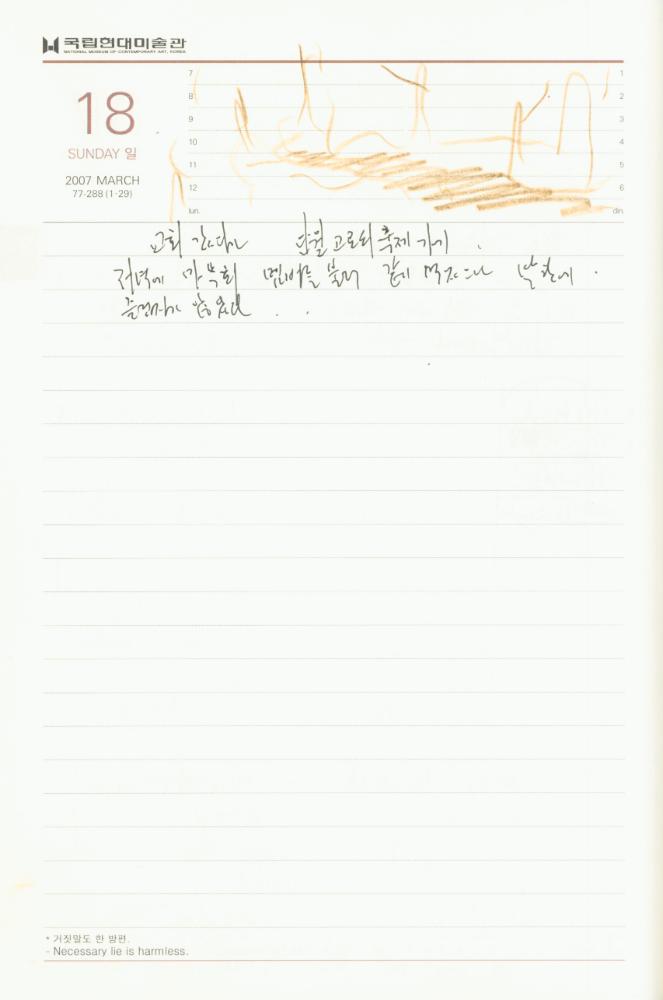 국립현대미술관
NATIONAL MUSEUM OF CONTEMPORARY ART, KOREA
18
SUNDAY 일
2007 MARCH
77-288 (1-29)
7
8
9
10
11
12
lun.
1
2
3
4
5
6
din.
교회 갔다가 단월 고로쇠 축제 가기.
저녁에 멤버들 불러 같이 먹자
* 거짓말도 한 방편.
- Necessary lie is harmless.